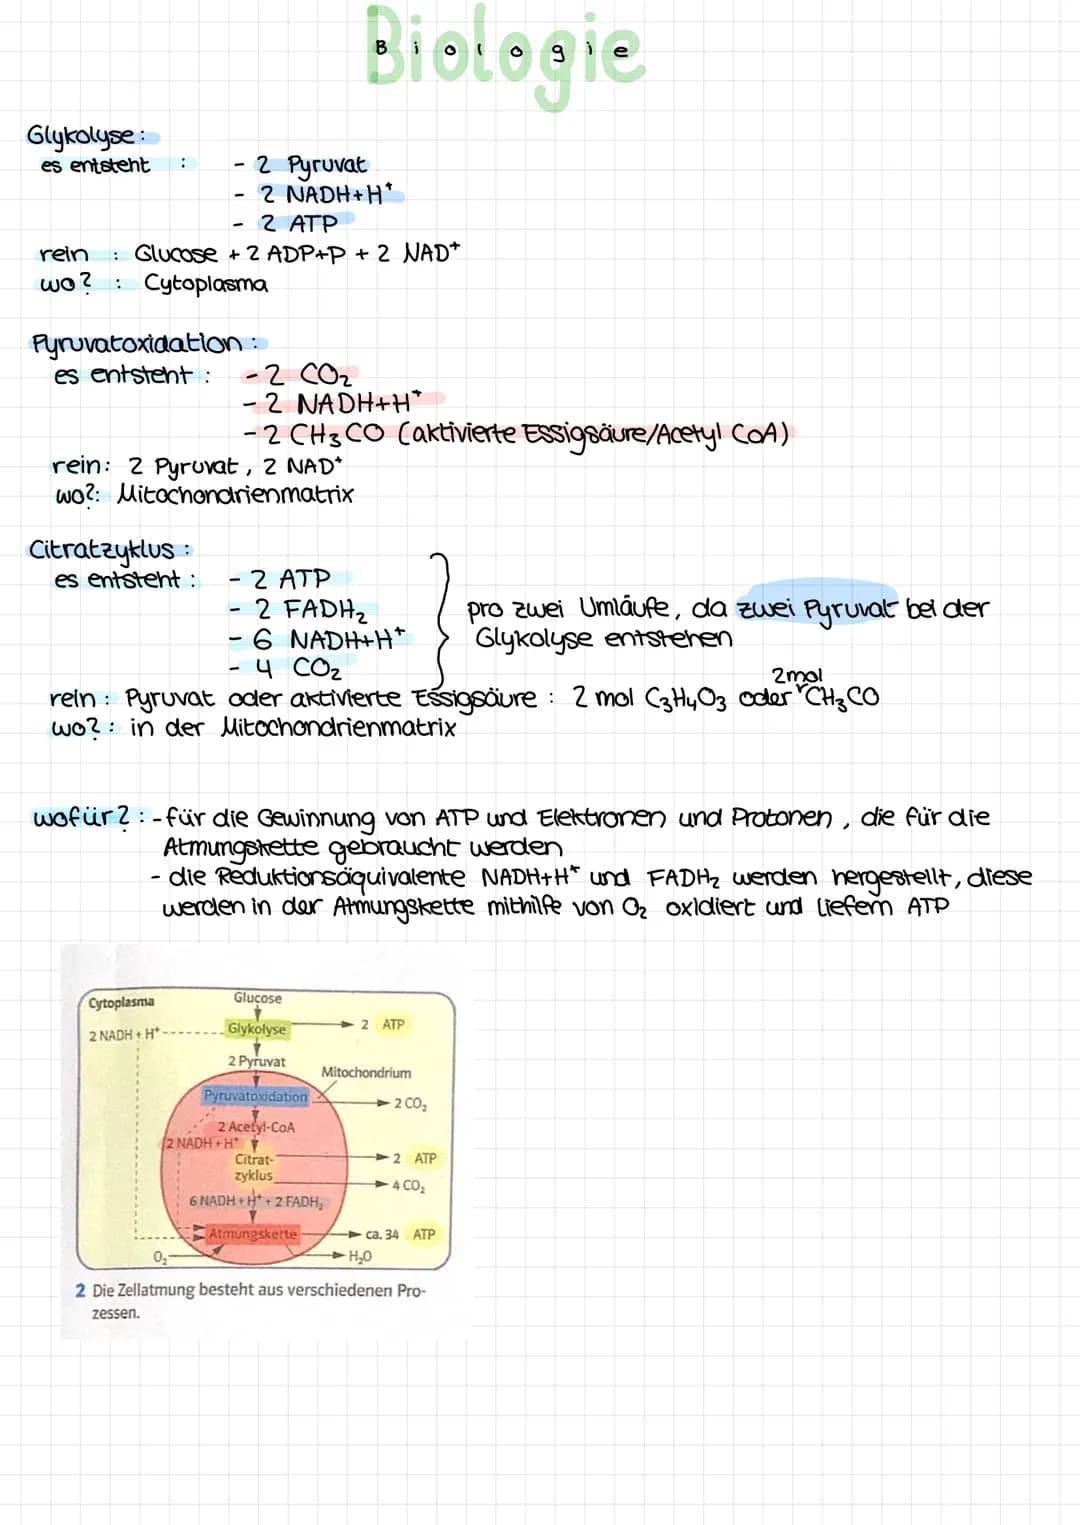 Biologie
Biologie
Glykolyse:
es entsteht : - 2 Pyruvat
- 2 NADH+H⁺
- 2 ATP
rein : Glucose + 2 ADP+P + 2 NAD⁺
wo? : Cytoplasma
Pyruvatoxidation:
es entsteht : - 2 CO₂
- 2 NADH+H⁺
- 2 CH₃CO (aktivierte Essigsäure/Acetyl CoA)
rein: 2 Pyruvat, 2 NAD⁺
wo?: Mitochondrienmatrix
Citratzyklus:
es entsteht : - 2 ATP
- 2 FADH₂
- 6 NADH+H⁺
- 4 CO₂
pro zwei Umläufe, da zwei Pyruvat bei der
Glykolyse entstehen
2mol
rein : Pyruvat oder aktivierte Essigsäure : 2 mol C₃H₄O₃ oder CH₃CO
wo? : in der Mitochondrienmatrix
wofür? : - für die Gewinnung von ATP und Elektronen und Protonen, die für die
Atmungskette gebraucht werden
- die Reduktionsäquivalente NADH+H⁺ und FADH₂ werden hergestellt, diese
werden in der Atmungskette mithilfe von O₂ oxidiert und liefern ATP
Cytoplasma
Glucose
2 NADH + H⁺
Glykolyse
2 ATP
2 Pyruvat
Mitochondrium
Pyruvatoxidation
2 CO₂
2 Acetyl-CoA
2 NADH + H⁺
Citrat-
zyklus
2 ATP
4 CO₂
6 NADH + H⁺ + 2 FADH₂
Atmungskette
ca. 34 ATP
O₂
H₂O
2 Die Zellatmung besteht aus verschiedenen Pro-
zessen.